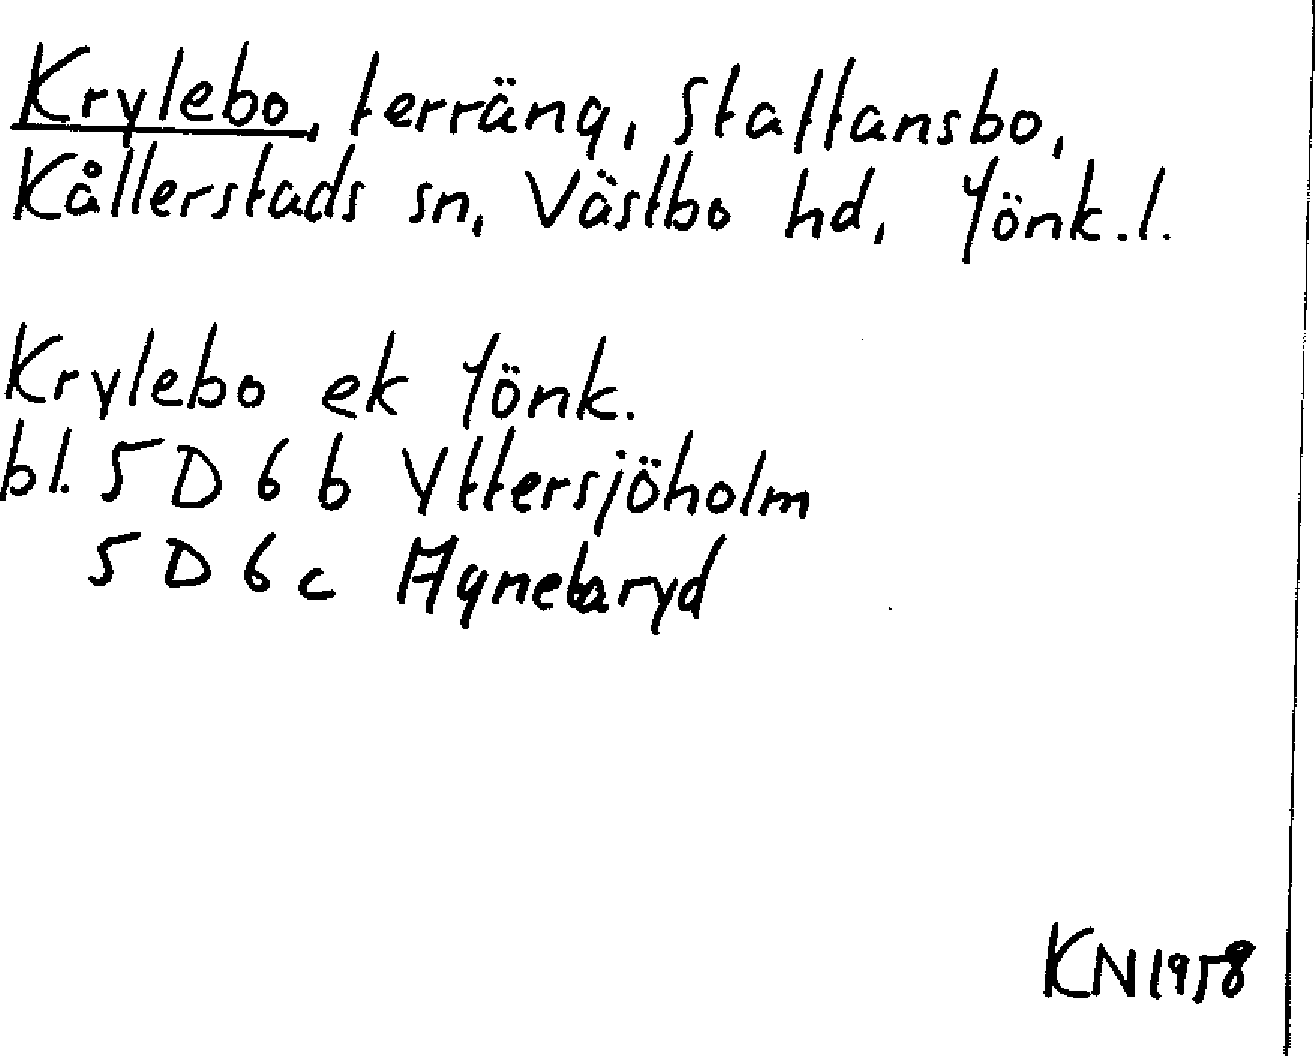 Krylebo, terräng, Stattansbo,
Kållerstads sn, Västbo hd, Jönk.l.
Krylebo ek Jönk.
bl. 5 D 6 b Yttersjöholm
5 D 6 c Agnetaryd
KN1958